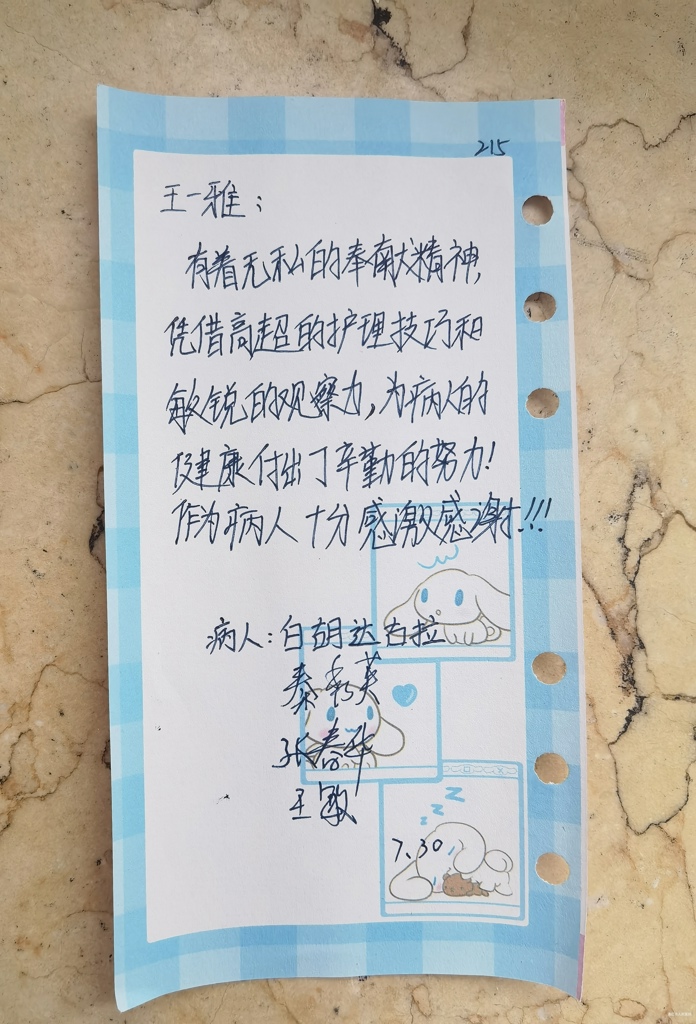 215
王一雅：
有着无私的奉献精神，
凭借高超的护理技巧和
敏锐的观察力，为病人的
健康付出了辛勤的努力！
作为病人十分感激感谢!!!
病人：白胡达古拉
秦秀英
张春华
王敏
7.30